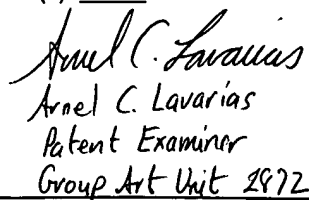 Arnel C. Lavarias
Arnel C. Lavarias
Patent Examiner
Group Art Unit 2872